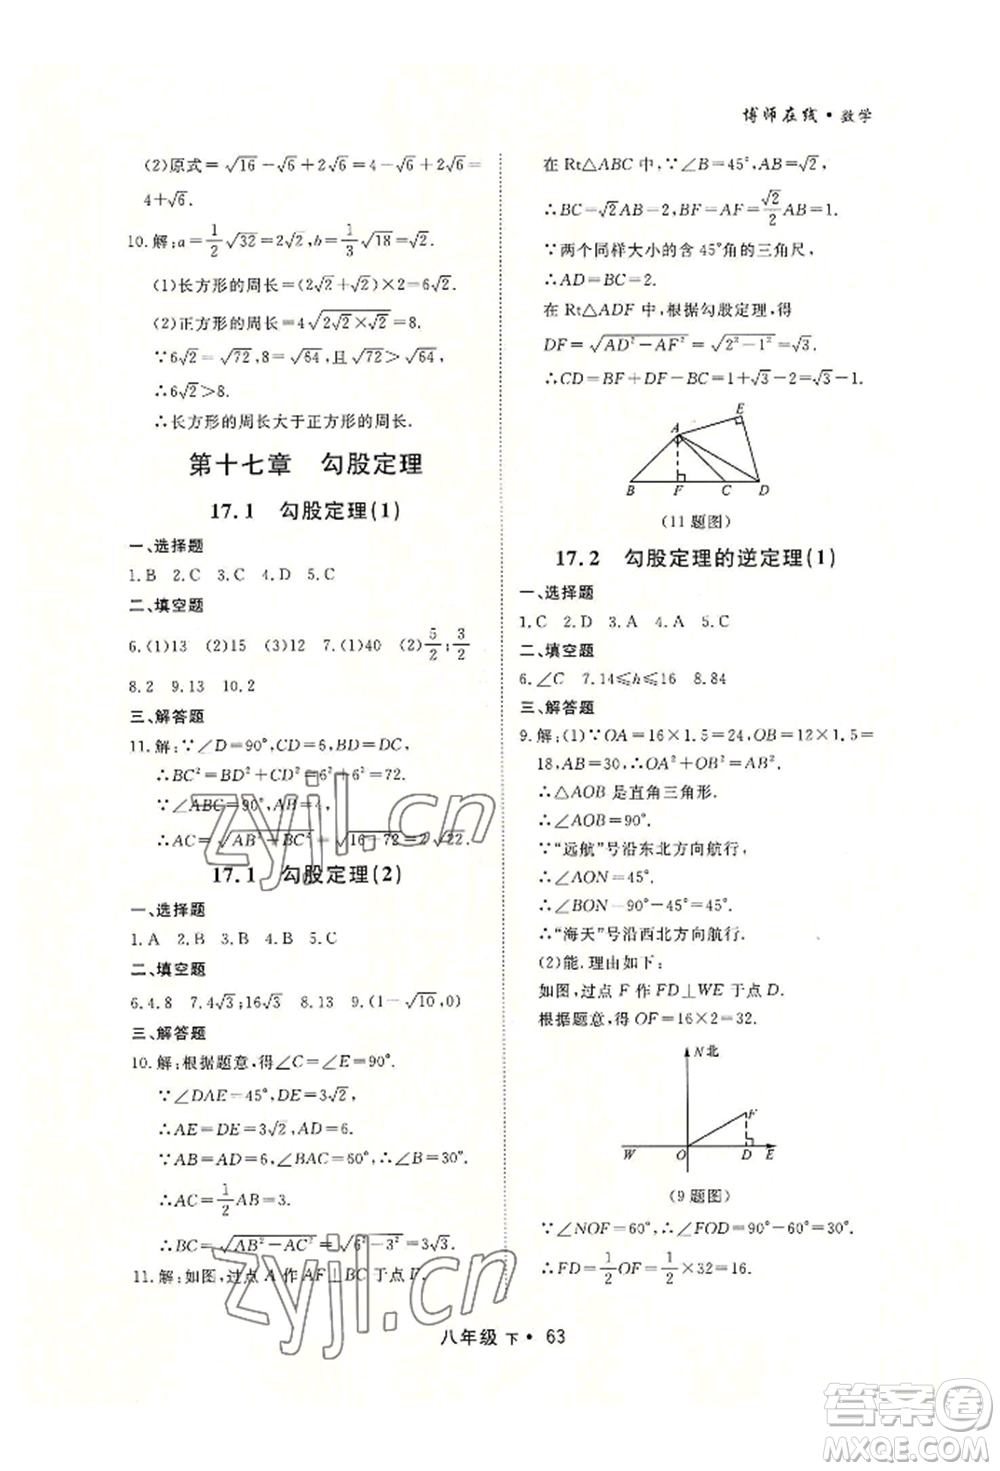 博师在线·数学
(2)原式=√16-√6+2√6=4-√6+2√6=
4+√6.
10.解:a=1/2√32=2√2,b=1/3√18=√2.
(1)长方形的周长=(2√2+√2)×2=6√2.
(2)正方形的周长=4√(2√2×√2)=8.
∵6√2=√72,8=√64,且√72>√64,
∴6√2>8.
∴长方形的周长大于正方形的周长.
第十七章 勾股定理
17.1 勾股定理(1)
一、选择题
1.B 2.C 3.C 4.C 5.C
二、填空题
6.(1)13 (2)15 7.(1)40 (2)5/2;3/2
8.2 9.13 10.2
三、解答题
11.解:∵∠D=90°,CD=6,BD=DC,
∴BC²=BD²+CD²=6²+6²=72.
∵∠ABC=90°,AB=4,
∴AC=√(AB²+BC²)=√(16+72)=2√22.
17.1 勾股定理(2)
一、选择题
1.A 2.B 3.B 4.B 5.C
二、填空题
6.4.8 7.4√3;16√3 8.13 9.(1-√10,0)
三、解答题
10.解:根据题意,得∠C=∠E=90°.
∵∠DAE=45°,DE=3√2,
∴AE=DE=3√2,AD=6.
∵AB=AD=6,∠BAC=60°,
∴AC=1/2AB=3.
∴BC=√(AB²-AC²)=√(6²-3²)=3√3.
11.解:如图,过点A作AF⊥BC于点F.
在Rt△ABC中,∵∠B=45°,AB=√2,
∴BC=√2AB=2,BF=AF=√2/2AB=1.
∵两个同样大小的含45°角的三角尺,
∴AD=BC=2.
在Rt△ADF中,根据勾股定理,得
DF=√(AD²-AF²)=√(2²-1²)=√3.
∴CD=BF+DF-BC=1+√3-2=√3-1.
E
A
B F C D
(11题图)
17.2 勾股定理的逆定理(1)
一、选择题
1.C 2.D 3.A 4.A 5.C
二、填空题
6.∠C 7.14≤h≤16 8.84
三、解答题
9.解:(1)∵OA=16×1.5=24,OB=12×1.5=
18,AB=30,∴OA²+OB²=AB².
∴△AOB是直角三角形.
∴∠AOB=90°.
∵“远航”号沿东北方向航行,
∴∠AON=45°.
∴∠BON=90°-45°=45°.
∴“海天”号沿西北方向航行.
(2)能.理由如下:
如图,过点F作FD⊥WE于点D.
根据题意,得OF=16×2=32.
N北
F
W O D E
(9题图)
∵∠NOF=60°,∴∠FOD=90°-60°=30°.
∴FD=1/2OF=1/2×32=16.
八年级 下·63
zyjl.cn
zyjl.cn
答案卷
MXQE.COM